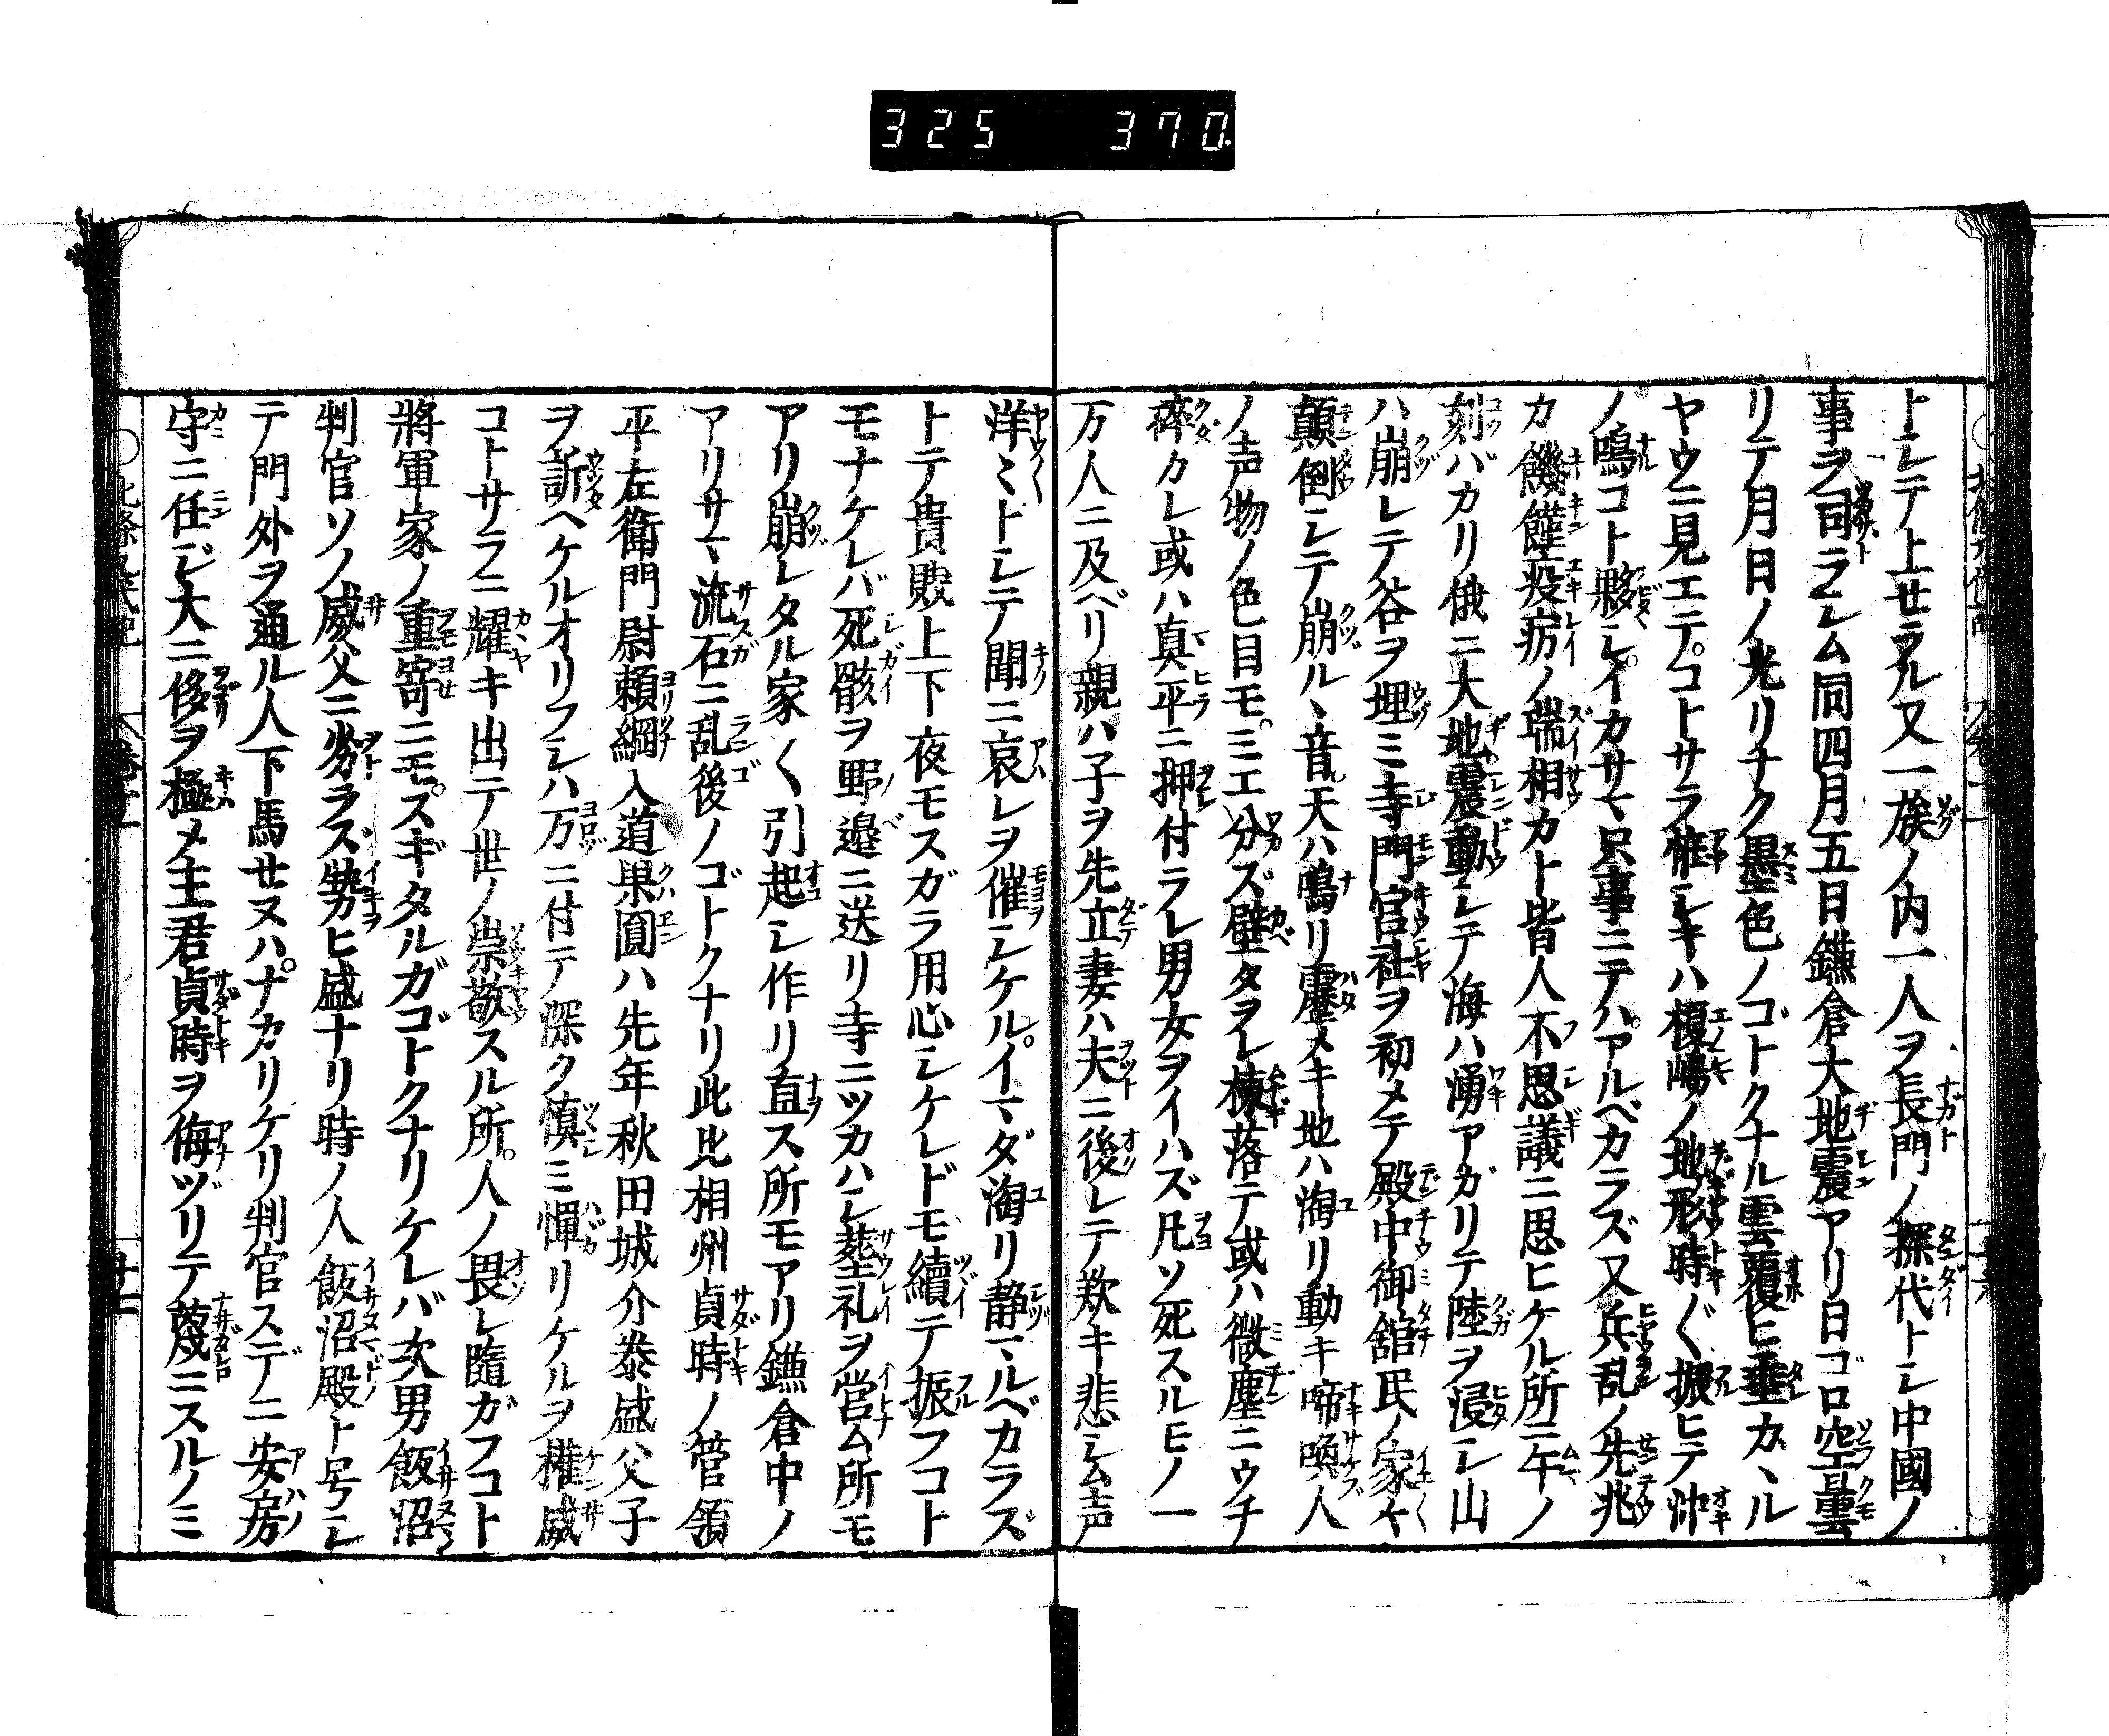 325 370.
トシテ上セラル又一族ノ内一人ヲ長門ノ探代トシ中國ノ
事ヲ司ラシム同四月五日鎌倉大地震アリ日ゴロ空曇
リテ月日ノ光リナク墨色ノゴトクナル雲覆ヒ垂カヽル
ヤウニ見エテコトサラ恠シキハ榎嶋ノ地形時〴〵振ヒテ沖
ノ鳴コト夥シイカサマ只事ニテハアルベカラズ又兵乱ノ先兆
カ饑饉疫癘ノ瑞相カト皆人不思議ニ思ヒケル所ニ午ノ
刻バカリ俄ニ大地震動シテ海ハ湧アガリテ陸ヲ浸シ山
ハ崩レテ谷ヲ埋ミ寺門官社ヲ初メテ殿中御舘民ノ家々
顛倒シテ崩ルヽ音天ハ鳴リ靂メキ地ハ淘リ動キ啼喚人
ノ声物ノ色目モミエ分ズ壁タヲレ棟落テ或ハ微塵ニウチ
碎カレ或ハ真平ニ押付ラレ男女ヲイハズ凡ソ死スルモノ一
万人ニ及ベリ親ハ子ヲ先立妻ハ夫ニ後レテ歎キ悲シム声
洋ミトシテ聞ニ哀レヲ催シケルイマダ淘リ静マルベカラズ
トテ貴賎上下夜モスガラ用心シケレドモ續テ振フコト
モナケレバ死骸ヲ野邉ニ送リ寺ニツカハシ葬礼ヲ営ム所モ
アリ崩レタル家〱引起シ作リ直ス所モアリ鎌倉中ノ
アリサマ流石ニ乱後ノゴトクナリ此比相州貞時ノ管領
平左衛門尉頼綱入道果圓ハ先年秋田城介泰盛父子
ヲ訴ヘケルオリフシハ万ニ付テ深ク慎ミ憚リケルヲ権威
コトサラニ耀キ出テ世ノ崇敬スル所人ノ畏レ隨ガフコト
將軍家ノ重寄ニモスギタルガゴトクナリケレバ次男飯沼
判官ソノ威父ニ劣ラズ勢ヒ盛ナリ時ノ人飯沼殿ト号シ
テ門外ヲ通ル人下馬セヌハナカリケリ判官スデニ安房
守ニ任ジ大ニ侈ヲ極メ主君貞時ヲ侮ヅリテ蔑ニスルノミ